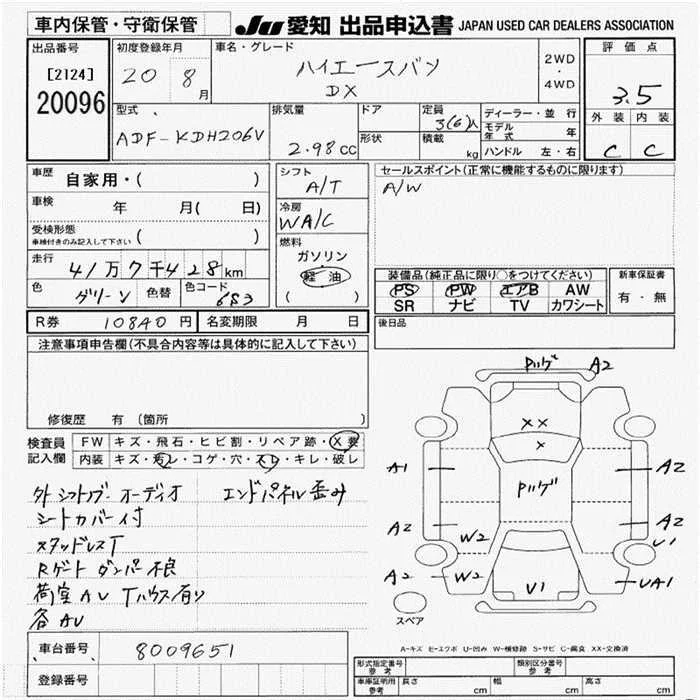 車内保管・守衛保管
JU 愛知 出品申込書 JAPAN USED CAR DEALERS ASSOCIATION
出品番号
[2124]
20096
初度登録年月
20 8月
車名・グレード
ハイエースバン
DX
2WD
・
4WD
評価点
3.5
外装 内装
C C
型式
ADF-KDH206V
排気量
2.98cc
ドア
形状
定員
3(6)人
積載
kg
ディーラー・並行
モデル年式 年
ハンドル 左・右
車歴
自家用・( )
車検
年 月( 日)
受検形態
車検付きのみ記入して下さい ( )
走行
41万7千428km
色
グリーン
色替
色コード
6S3
シフト
A/T
冷房
WA/C
燃料
ガソリン
軽油
( )
セールスポイント(正常に機能するものに限ります)
A/W
装備品(純正品に限り○をつけてください)
PS PW エアB AW
SR ナビ TV カワシート
新車保証書
有・無
R券 10840円
名変期限 月 日
後日品
注意事項申告欄(不具合内容等は具体的に記入して下さい)
修復歴 有 (箇所
検査員
記入欄
FW キズ・飛石・ヒビ割・リペア跡・X要
内装 キズ・汚レ・コゲ・穴・スレ・キレ・破レ
外シフトノブ オーディオ
シートカバー付
スタッドレスT
Rゲート ダンパー不良
荷室AU Tハウス有り
各AU
エンドパネル歪み
車台番号
8009651
登録番号
Pリゲ
A2
XX
X
A1
Pリゲ
A2
A2
W2
A2
U1
A2
W2
U1
UA1
スペア
A-キズ E-エクボ U-凹み W-補修跡 S-サビ C-腐食 XX-交換済
形式指定番号
参考
類別区分番号
参考
車庫証明用
参考
長さ cm
幅 cm
高さ cm